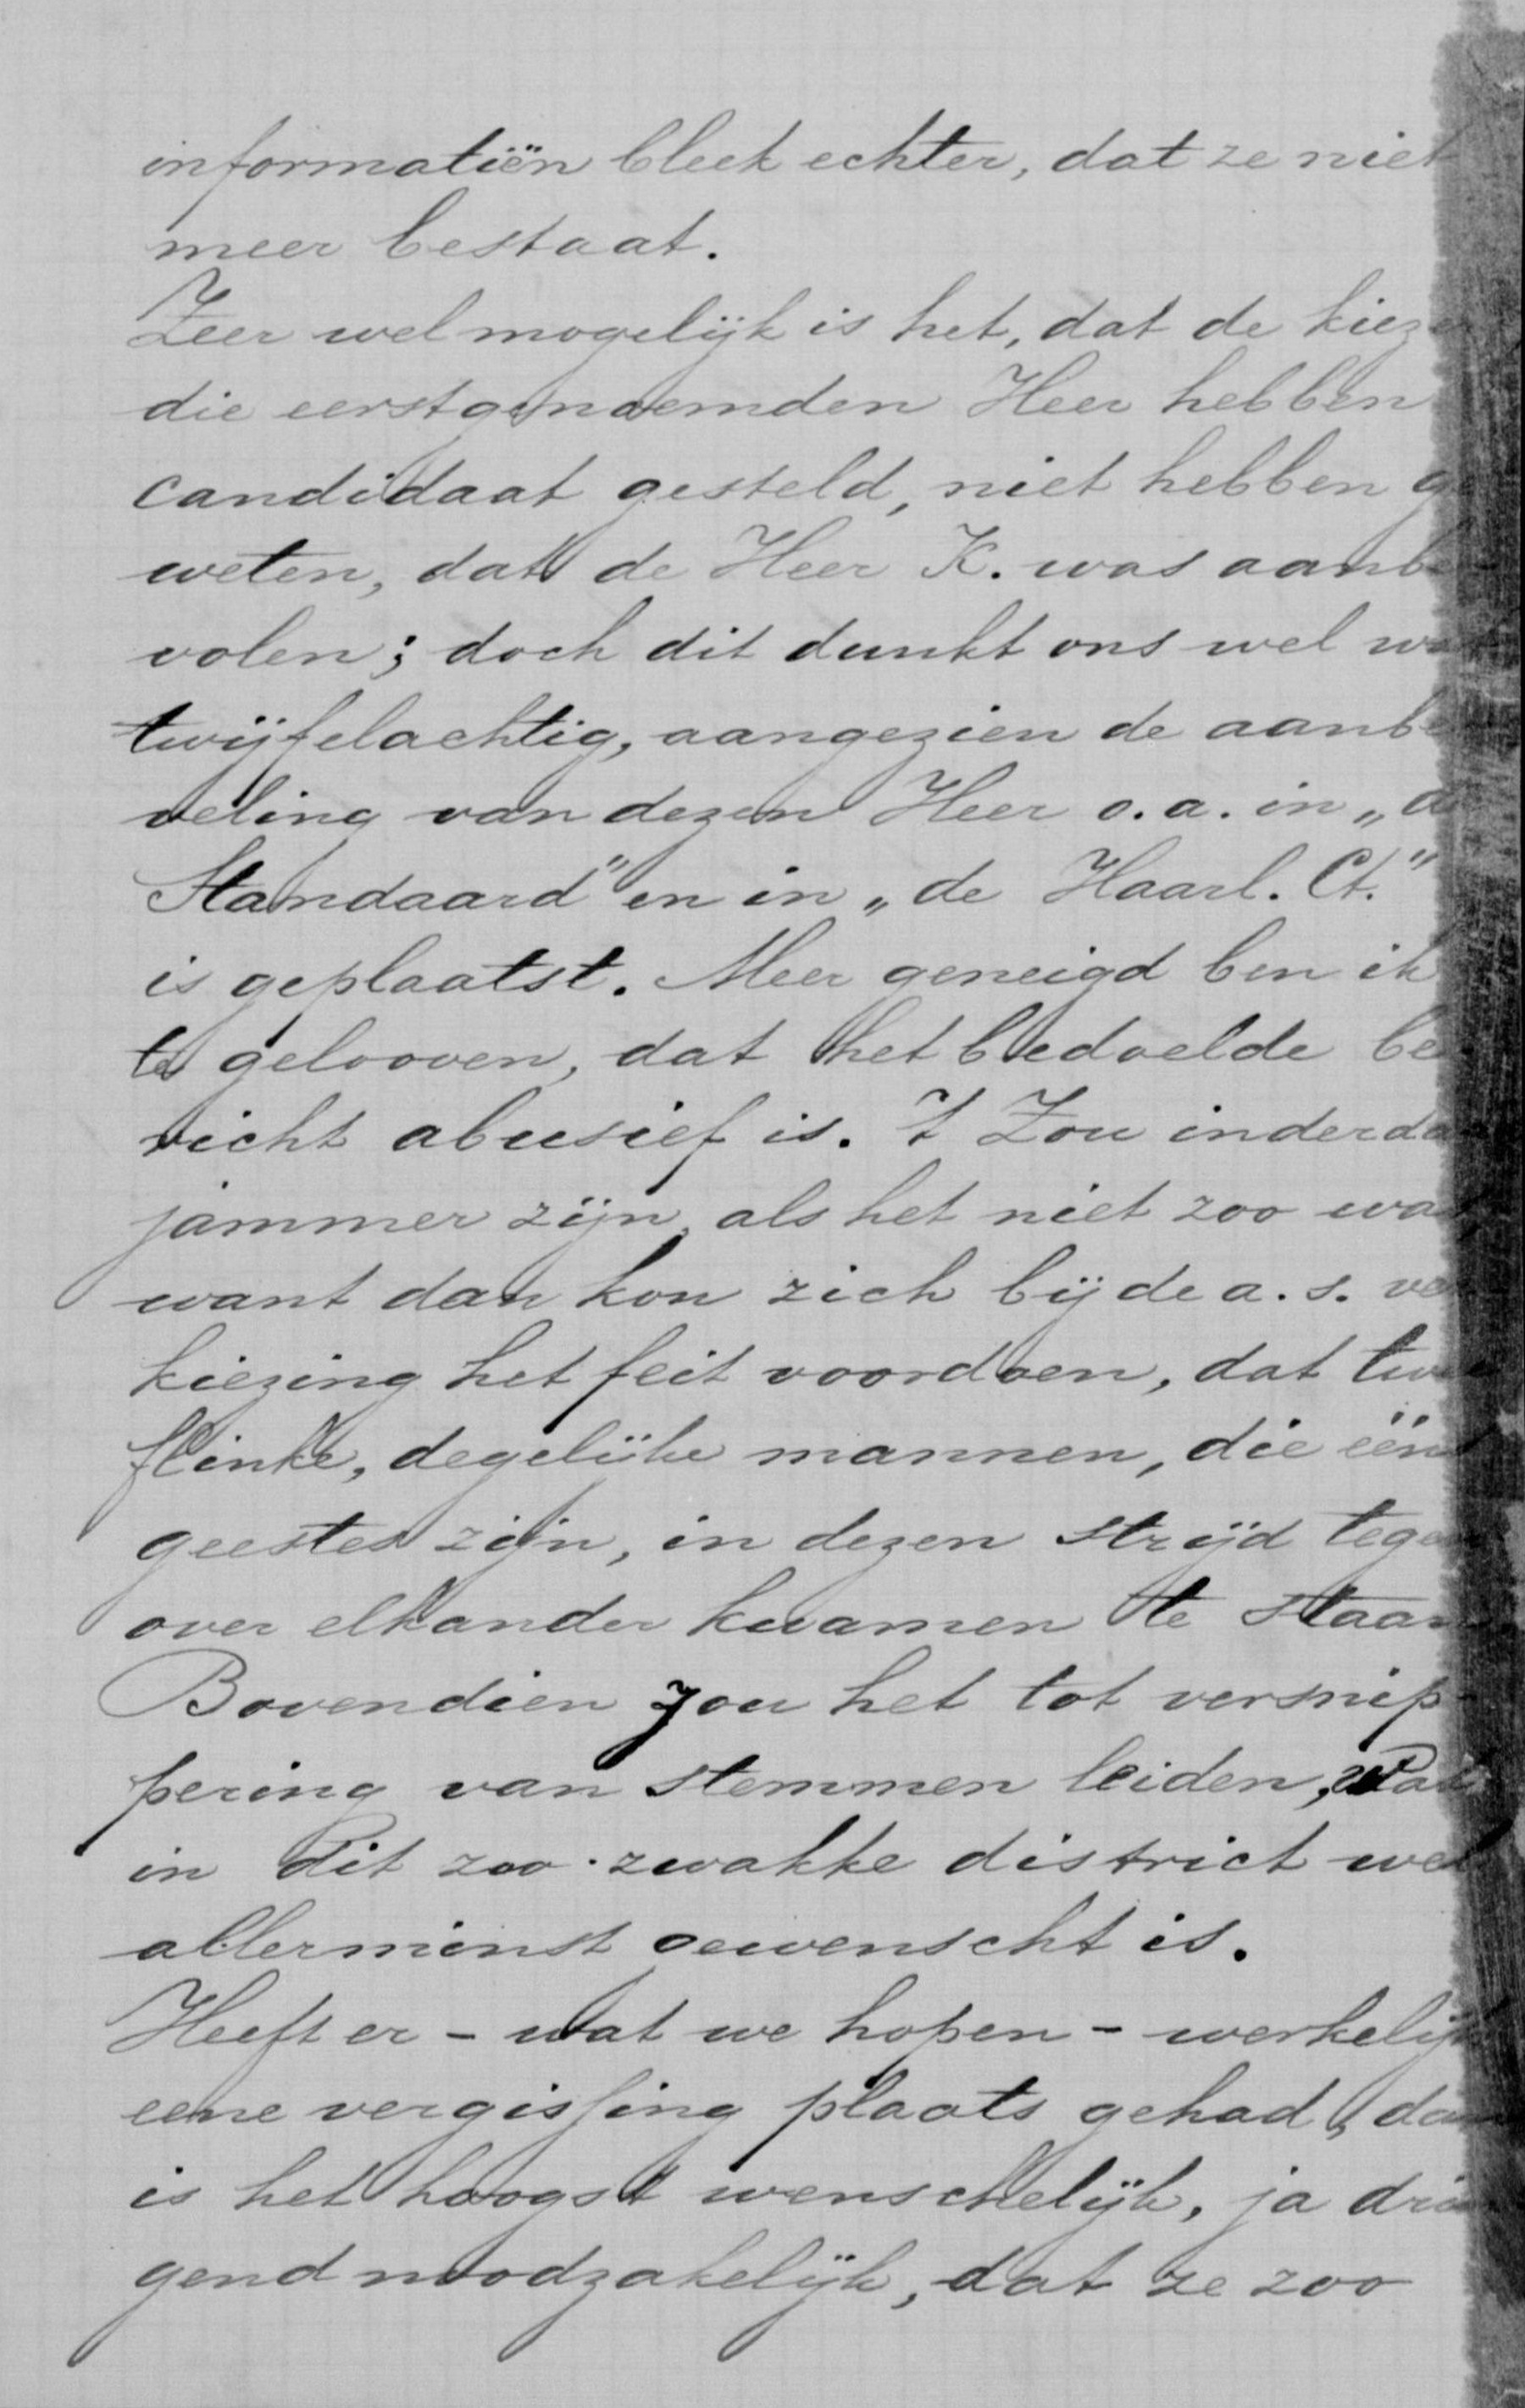 informatiën bleek echter, dat ze niet
meer bestaat.
Zeer wel mogelijk is het, dat de kieze
die eerstgenoemden Heer hebben
candidaat gesteld, niet hebben g
weten, dat de Heer K. was aanbe
volen; doch dit dunkt ons wel wa
twijfelachtig, aangezien de aanbe
veling van dezen Heer o.a. in „d
Standaard" en in „de Haarl. Ct."
is geplaatst. Meer geneigd ben ik
te gelooven, dat het bedoelde be
richt abusief is. 't Zou inderda
jammer zijn, als het niet zoo was
want dan kon zich bij de a.s. ver
kiezing het feit voordoen, dat twee
flinke, degelijke mannen, die één
geestes zijn, in dezen strijd tegen
over elkander kwamen te staan
Bovendien zou het tot versnip-
pering van stemmen leiden, wat
in dit zoo zwakke district wel
allerminst gewenscht is.
Heeft er - wat we hopen - werkelijk
eene vergissing plaats gehad, dan
is het hoogst wenschelijk, ja drin
gend noodzakelijk, dat ze zoo